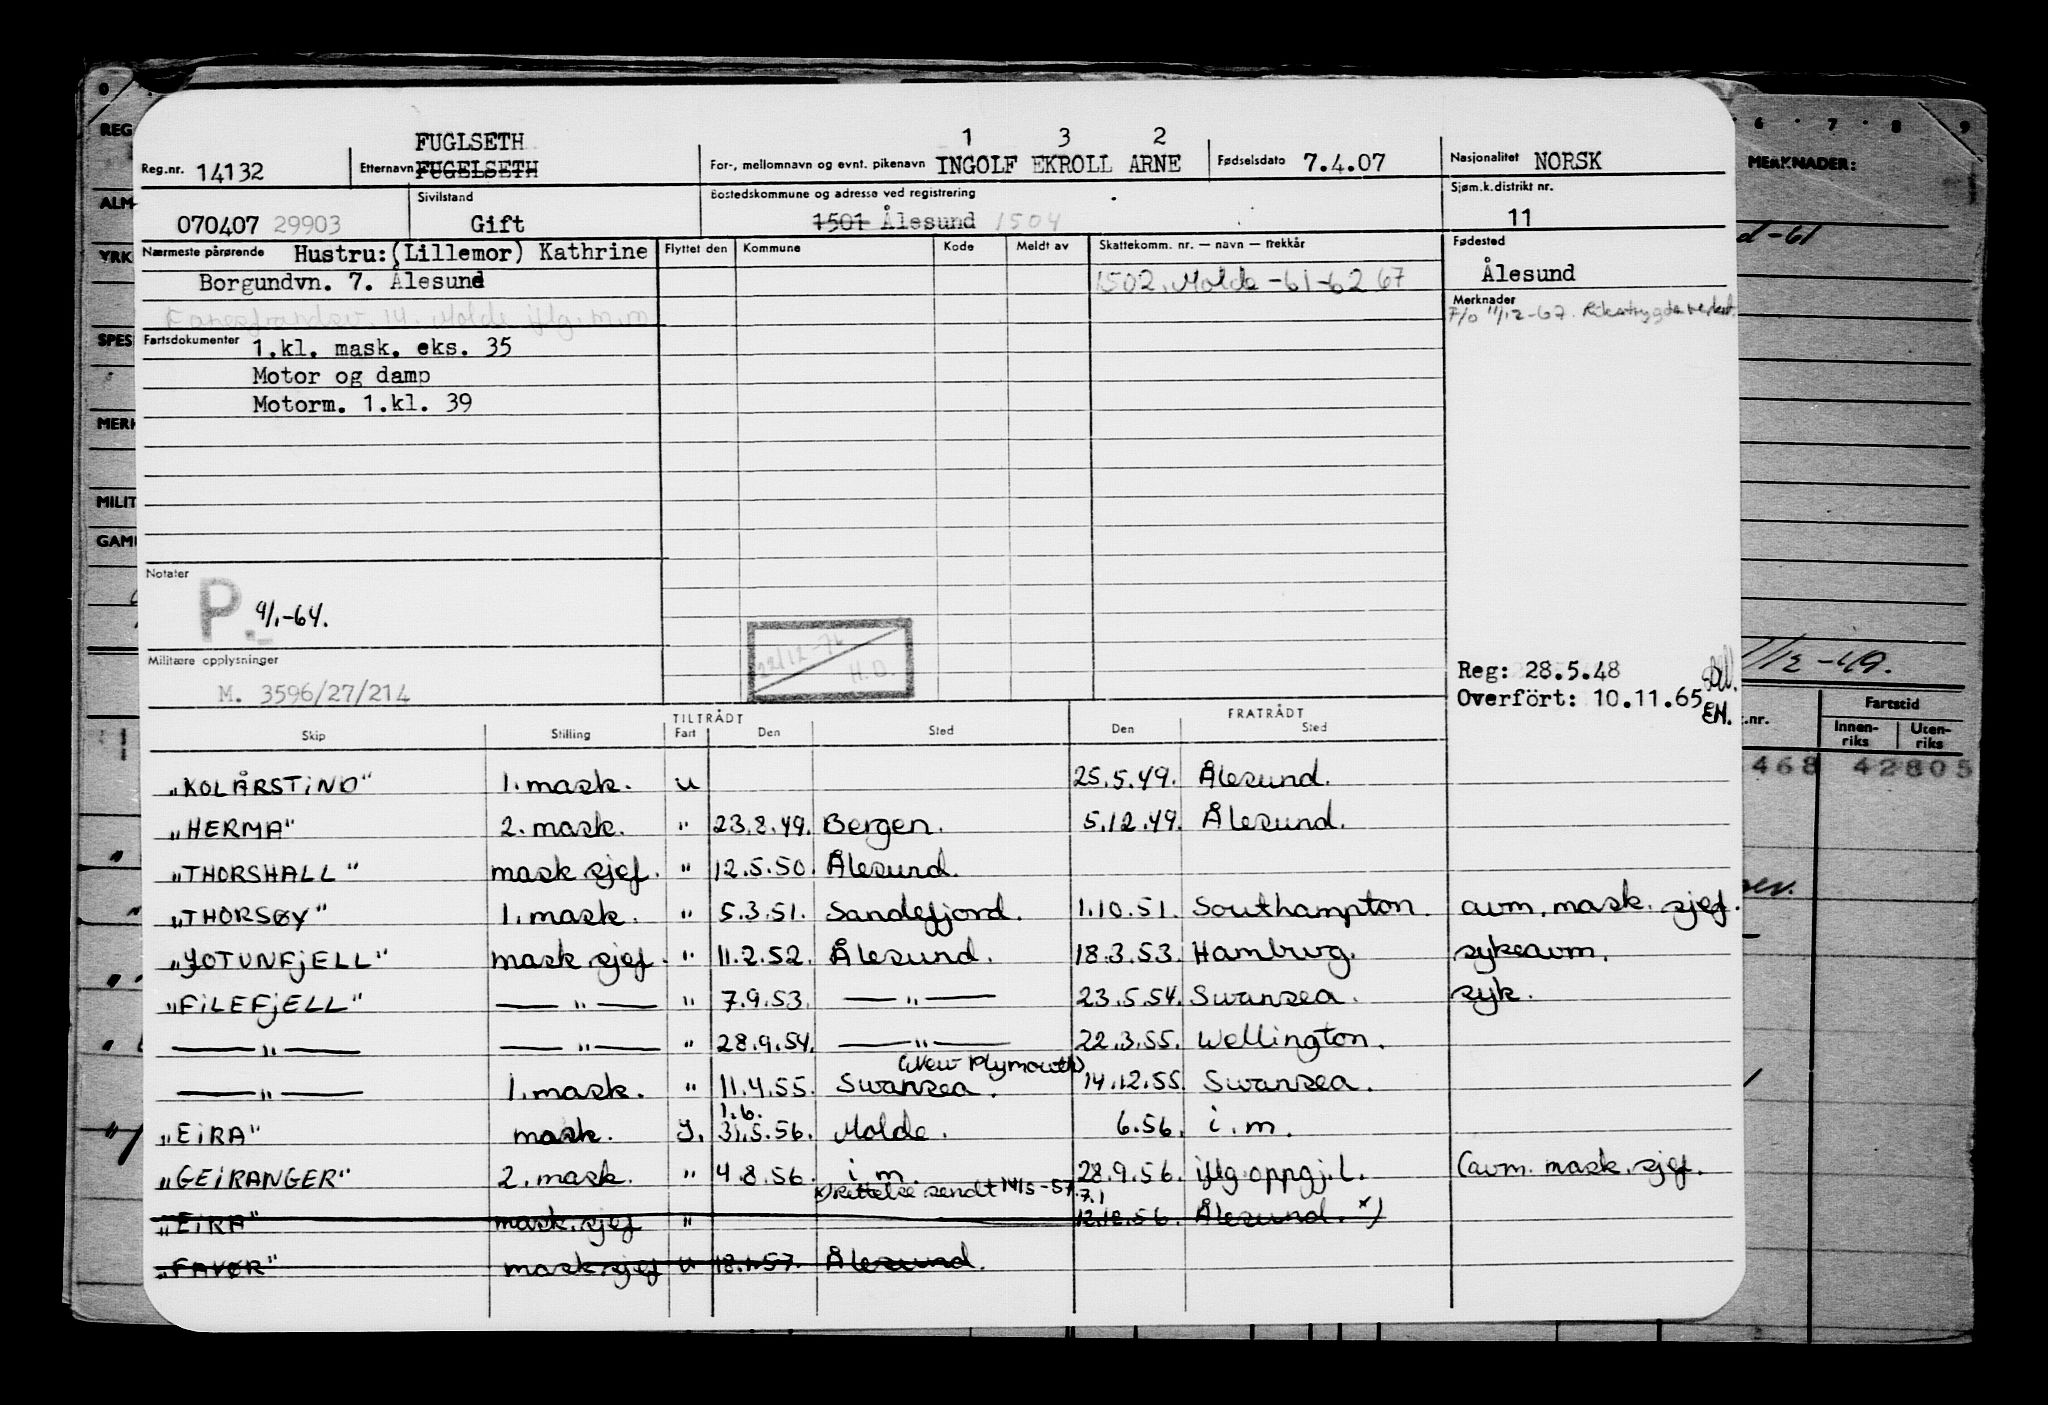 FUGLSETH 1 3 2
Reg.nr. 14132 Etternavn FUGELSETH For-, mellomnavn og evnt. pikenavn INGOLF EKROLL ARNE Fødselsdato 7.4.07 Nasjonalitet NORSK
Sivilstand Bostedskommune og adresse ved registrering Sjøm.k.distrikt nr.
070407 29903 Gift 1501 Ålesund 1504 11
Nærmeste pårørende Hustru:(Lillemor) Kathrine Flyttet den Kommune Kode Meldt av Skattekomm. nr. — navn — trekkår Fødested
Borgundvn. 7. Ålesund 1502, Molde -61-62 67 Ålesund
14. Molde iflg. m.m Merknader
7/0 11/12-67. Rikstrygdeverket
Fartsdokumenter 1.kl. mask. eks. 35
Motor og damp
Motorm. 1.kl. 39
Notater
P. 9/1-64.
22/12-76 H.O.
Militære opplysninger Reg: 28.5.48
M. 3596/27/214 Overfört: 10.11.65 EH.
TILTRÅDT FRATRÅDT
Skip Stilling Fart Den Sted Den Sted
"KOLÅRSTIND" 1. mask. u 25.5.49. Ålesund.
"HERMA" 2. mask. " 23.8.49. Bergen. 5.12.49. Ålesund.
"THORSHALL" mask sjef. " 12.5.50. Ålesund.
"THORSØY" 1. mask. " 5.3.51. Sandefjord. 1.10.51. Southampton. avm. mask. sjef.
"JOTUNFJELL" mask sjef. " 11.2.52. Ålesund. 18.3.53. Hamburg. sykeavm.
"FILEFJELL" — " — " 7.9.53. — " — 23.5.54. Swansea. syk.
— " — — " — " 28.9.54. — " — 22.3.55. Wellington.
(New Plymouth)
— " — 1. mask. " 11.4.55. Swansea. 14.12.55. Swansea.
1.6.
"EIRA" mask. J. 31.5.56. Molde. 6.56. i.m.
"GEIRANGER" 2. mask. " 4.8.56. i m. 28.9.56. iflg. oppgj.l. (avm. mask. sjef.
x) rettelse sendt 14/5-57. 7.1
"EIRA" mask. sjef " 12.12.56. Ålesund. x)
"FAVØR" mask. sjef u 18.1.57. Ålesund.
0 6 7 8 9
REG MERKNADER:
ALM
YRK d-61
SPES
MERK
MILIT
GAM
/12-49.
.nr. Fartstid
Innen-riks Uten-riks
468 42805